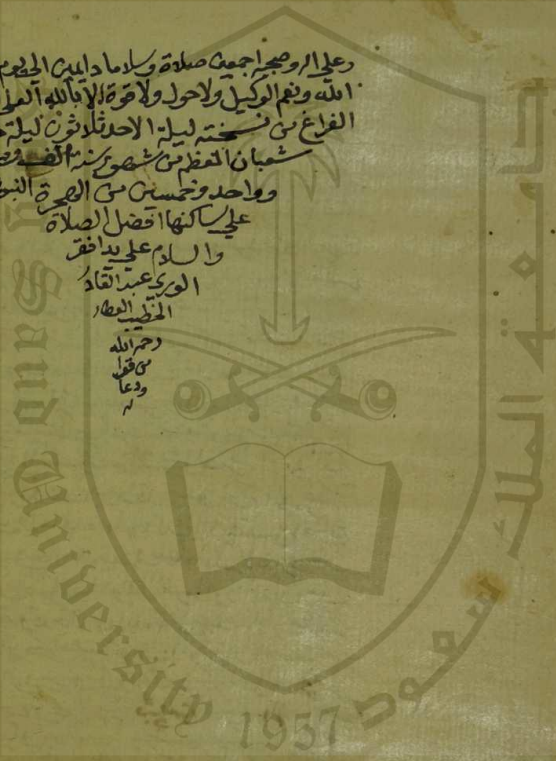 وعلي اله وصحبه اجمعين صلاة وسلاما دايمين الي يوم
الله ونعم الوكيل ولا حول ولا قوة الا بالله العلي
الفراغ من نسخته ليلة الاحد ثلاثون ليلة
شعبان المعظم من شهور سنة الف
وواحد وخمسين من الهجرة النبو
علي ساكنها افضل الصلاة
والسلام علي يد افقر
الوري عبد القادر
الخطيب العطار
رحم الله
من قرا
ودعا
له
جامعة الملك سعود
Saud University
1957